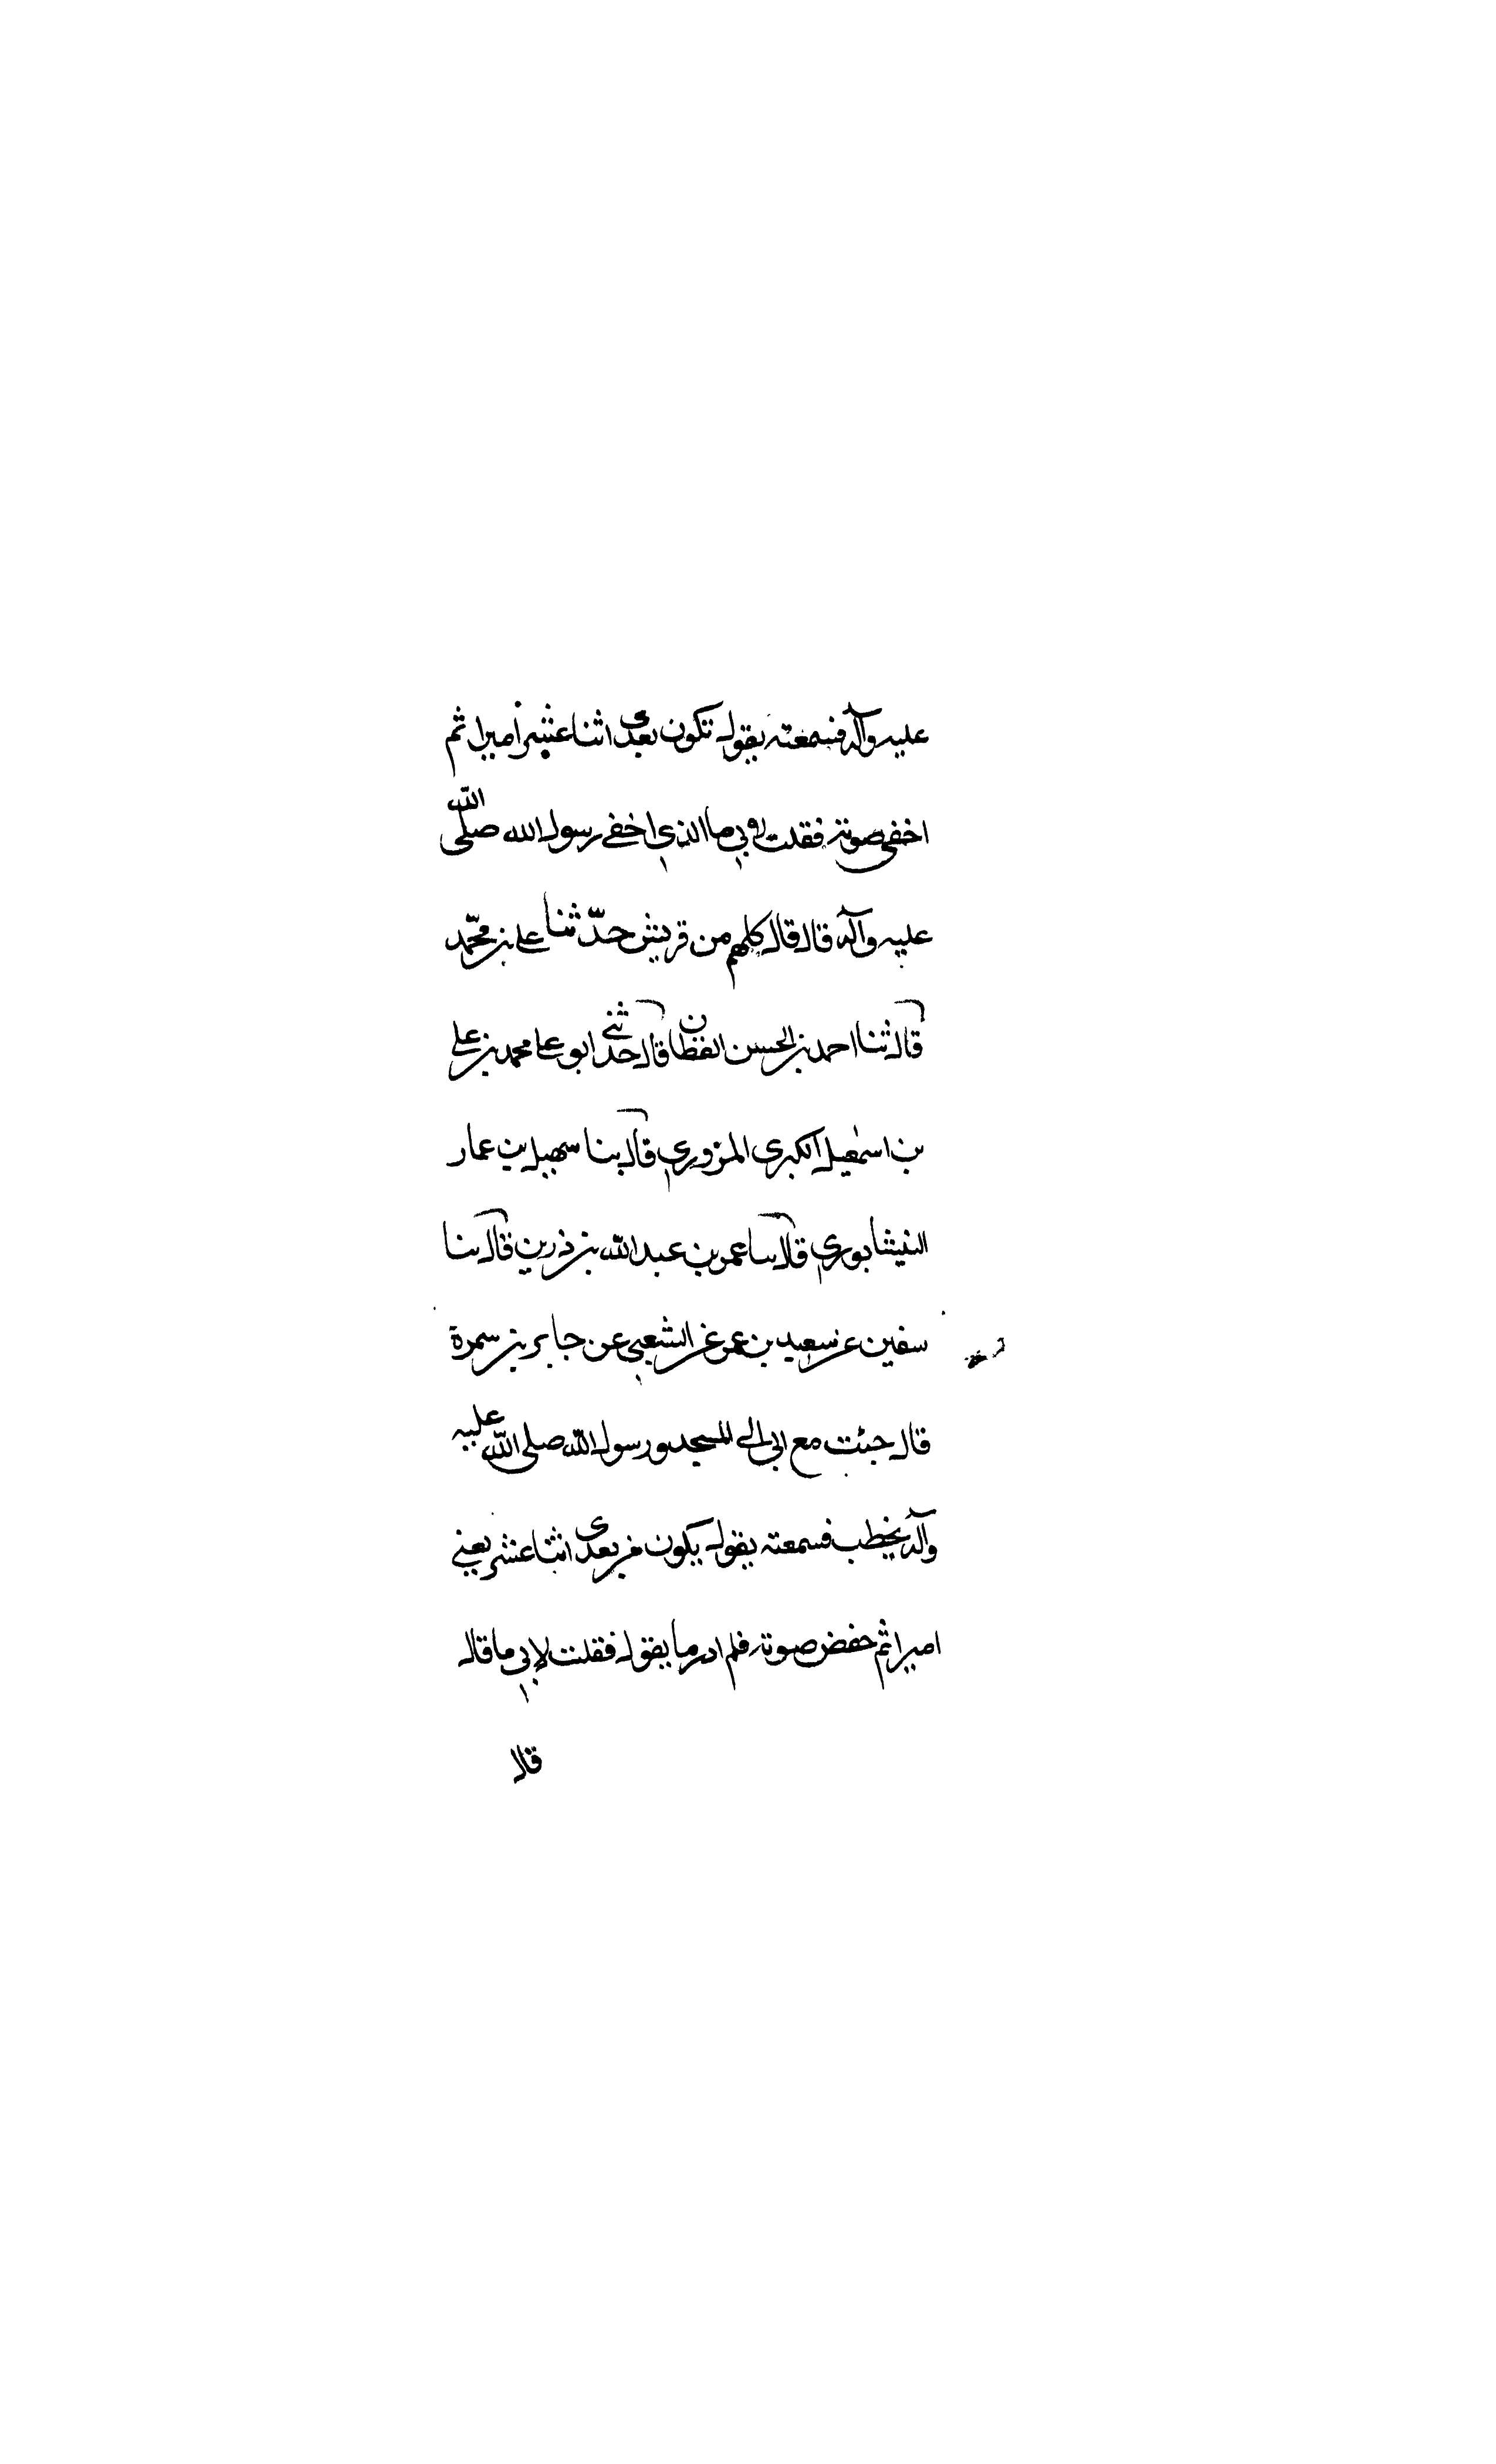 عليه وآله فسمعته يقول تكون بعدى اثنا عشر أميرا ثم
اخفى صوته فقلت لابي ما الذي اخفى رسول الله صلى الله
عليه وآله قال قال كلهم من قريش حدّثنا علي بن محمّد
قال ثنا احمد بن الحسن القطان قال حدثني ابو علي محمد بن علي
بن اسمعيل المروزي قال بنا سهيل بن عمار
النيشابوري قال بنا عمرو بن عبد الله بن رزين قال بنا
سفين عن سعيد بن عمرو عن الشعبي عن جابر بن سمرة
قال جئت مع ابى الى المسجد ورسول الله صلى الله عليه
وآله يخطب فسمعته يقول يكون من بعدى اثنا عشر يعني
اميرا ثم خفض صوته فلم ادر ما يقول فقلت لابي ما قال
قال